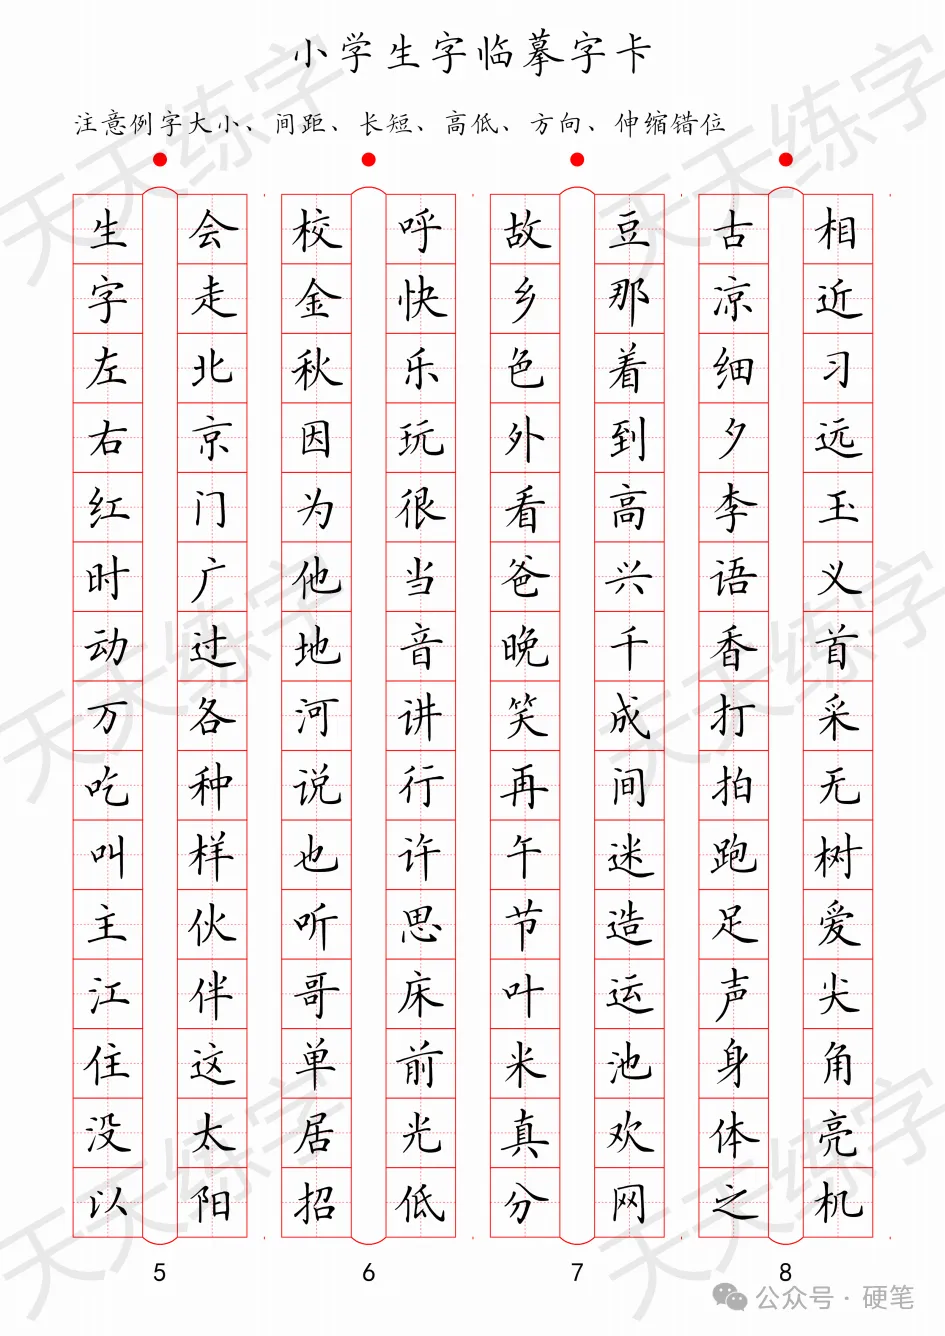 小学生字临摹字卡
注意例字大小、间距、长短、高低、方向、伸缩错位
生 会 校 呼 故 豆 古 相
字 走 金 快 乡 那 凉 近
左 北 秋 乐 色 着 细 习
右 京 因 玩 外 到 夕 远
红 门 为 很 看 高 李 玉
时 广 他 当 爸 兴 语 义
动 过 地 音 晚 千 香 首
万 各 河 讲 笑 成 打 采
吃 种 说 行 再 间 拍 无
叫 样 也 许 午 迷 跑 树
主 伙 听 思 节 造 足 爱
江 伴 哥 床 叶 运 声 尖
住 这 单 前 米 池 身 角
没 太 居 光 真 欢 体 亮
以 阳 招 低 分 网 之 机
5 6 7 8
公众号·硬笔
天天练字
天天练字
天天练字
天天练字
天天练字
天天练字